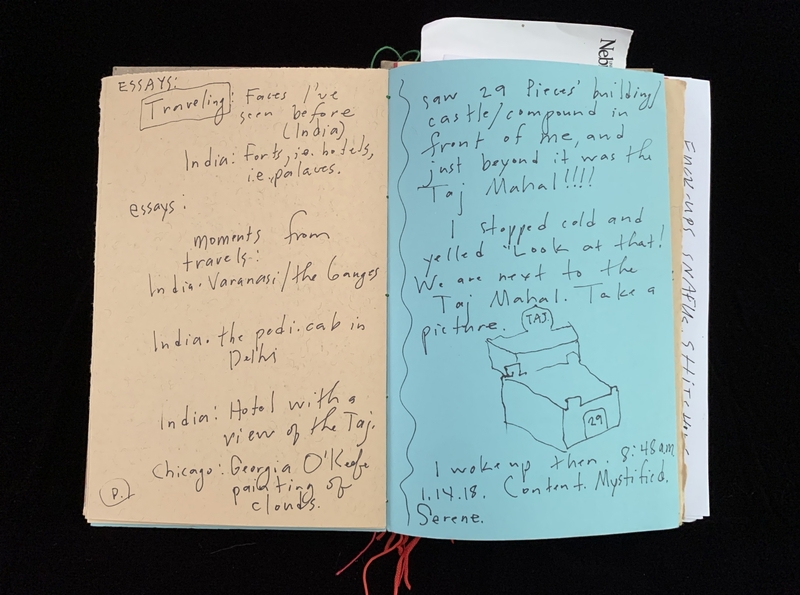 ESSAYS:
Traveling: Faces I've
seen before
(India)
India: Forts, i.e. hotels,
i.e. palaces.
essays:
moments from
travels:
India. Varanasi/the Ganges
India. the pedi.cab in
Delhi
India: Hotel with a
view of the Taj.
Chicago: Georgia O'Keefe
painting of
clouds.
P.
Neb
saw 29 Pieces' building/
castle/compound in
front of me, and
just beyond it was the
Taj Mahal!!!!
I stopped cold and
yelled "Look at that!
We are next to the
Taj Mahal. Take a
picture.
TAJ.
29
I woke up then. 8:48am
1.14.18. Content. Mystified.
Serene.
SNAFUS